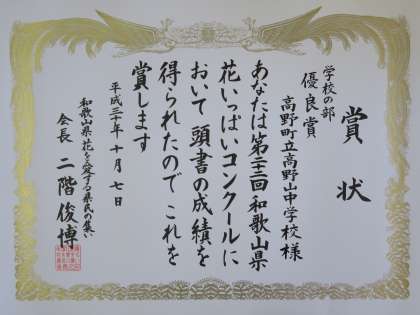 賞状
学校の部
優良賞
高野町立高野山中学校様
あなたは第二十二回和歌山県
花いっぱいコンクールに
おいて頭書の成績を
得られたのでこれを
賞します
平成三十年十月七日
和歌山県花を愛する県民の集い
会長 二階俊博